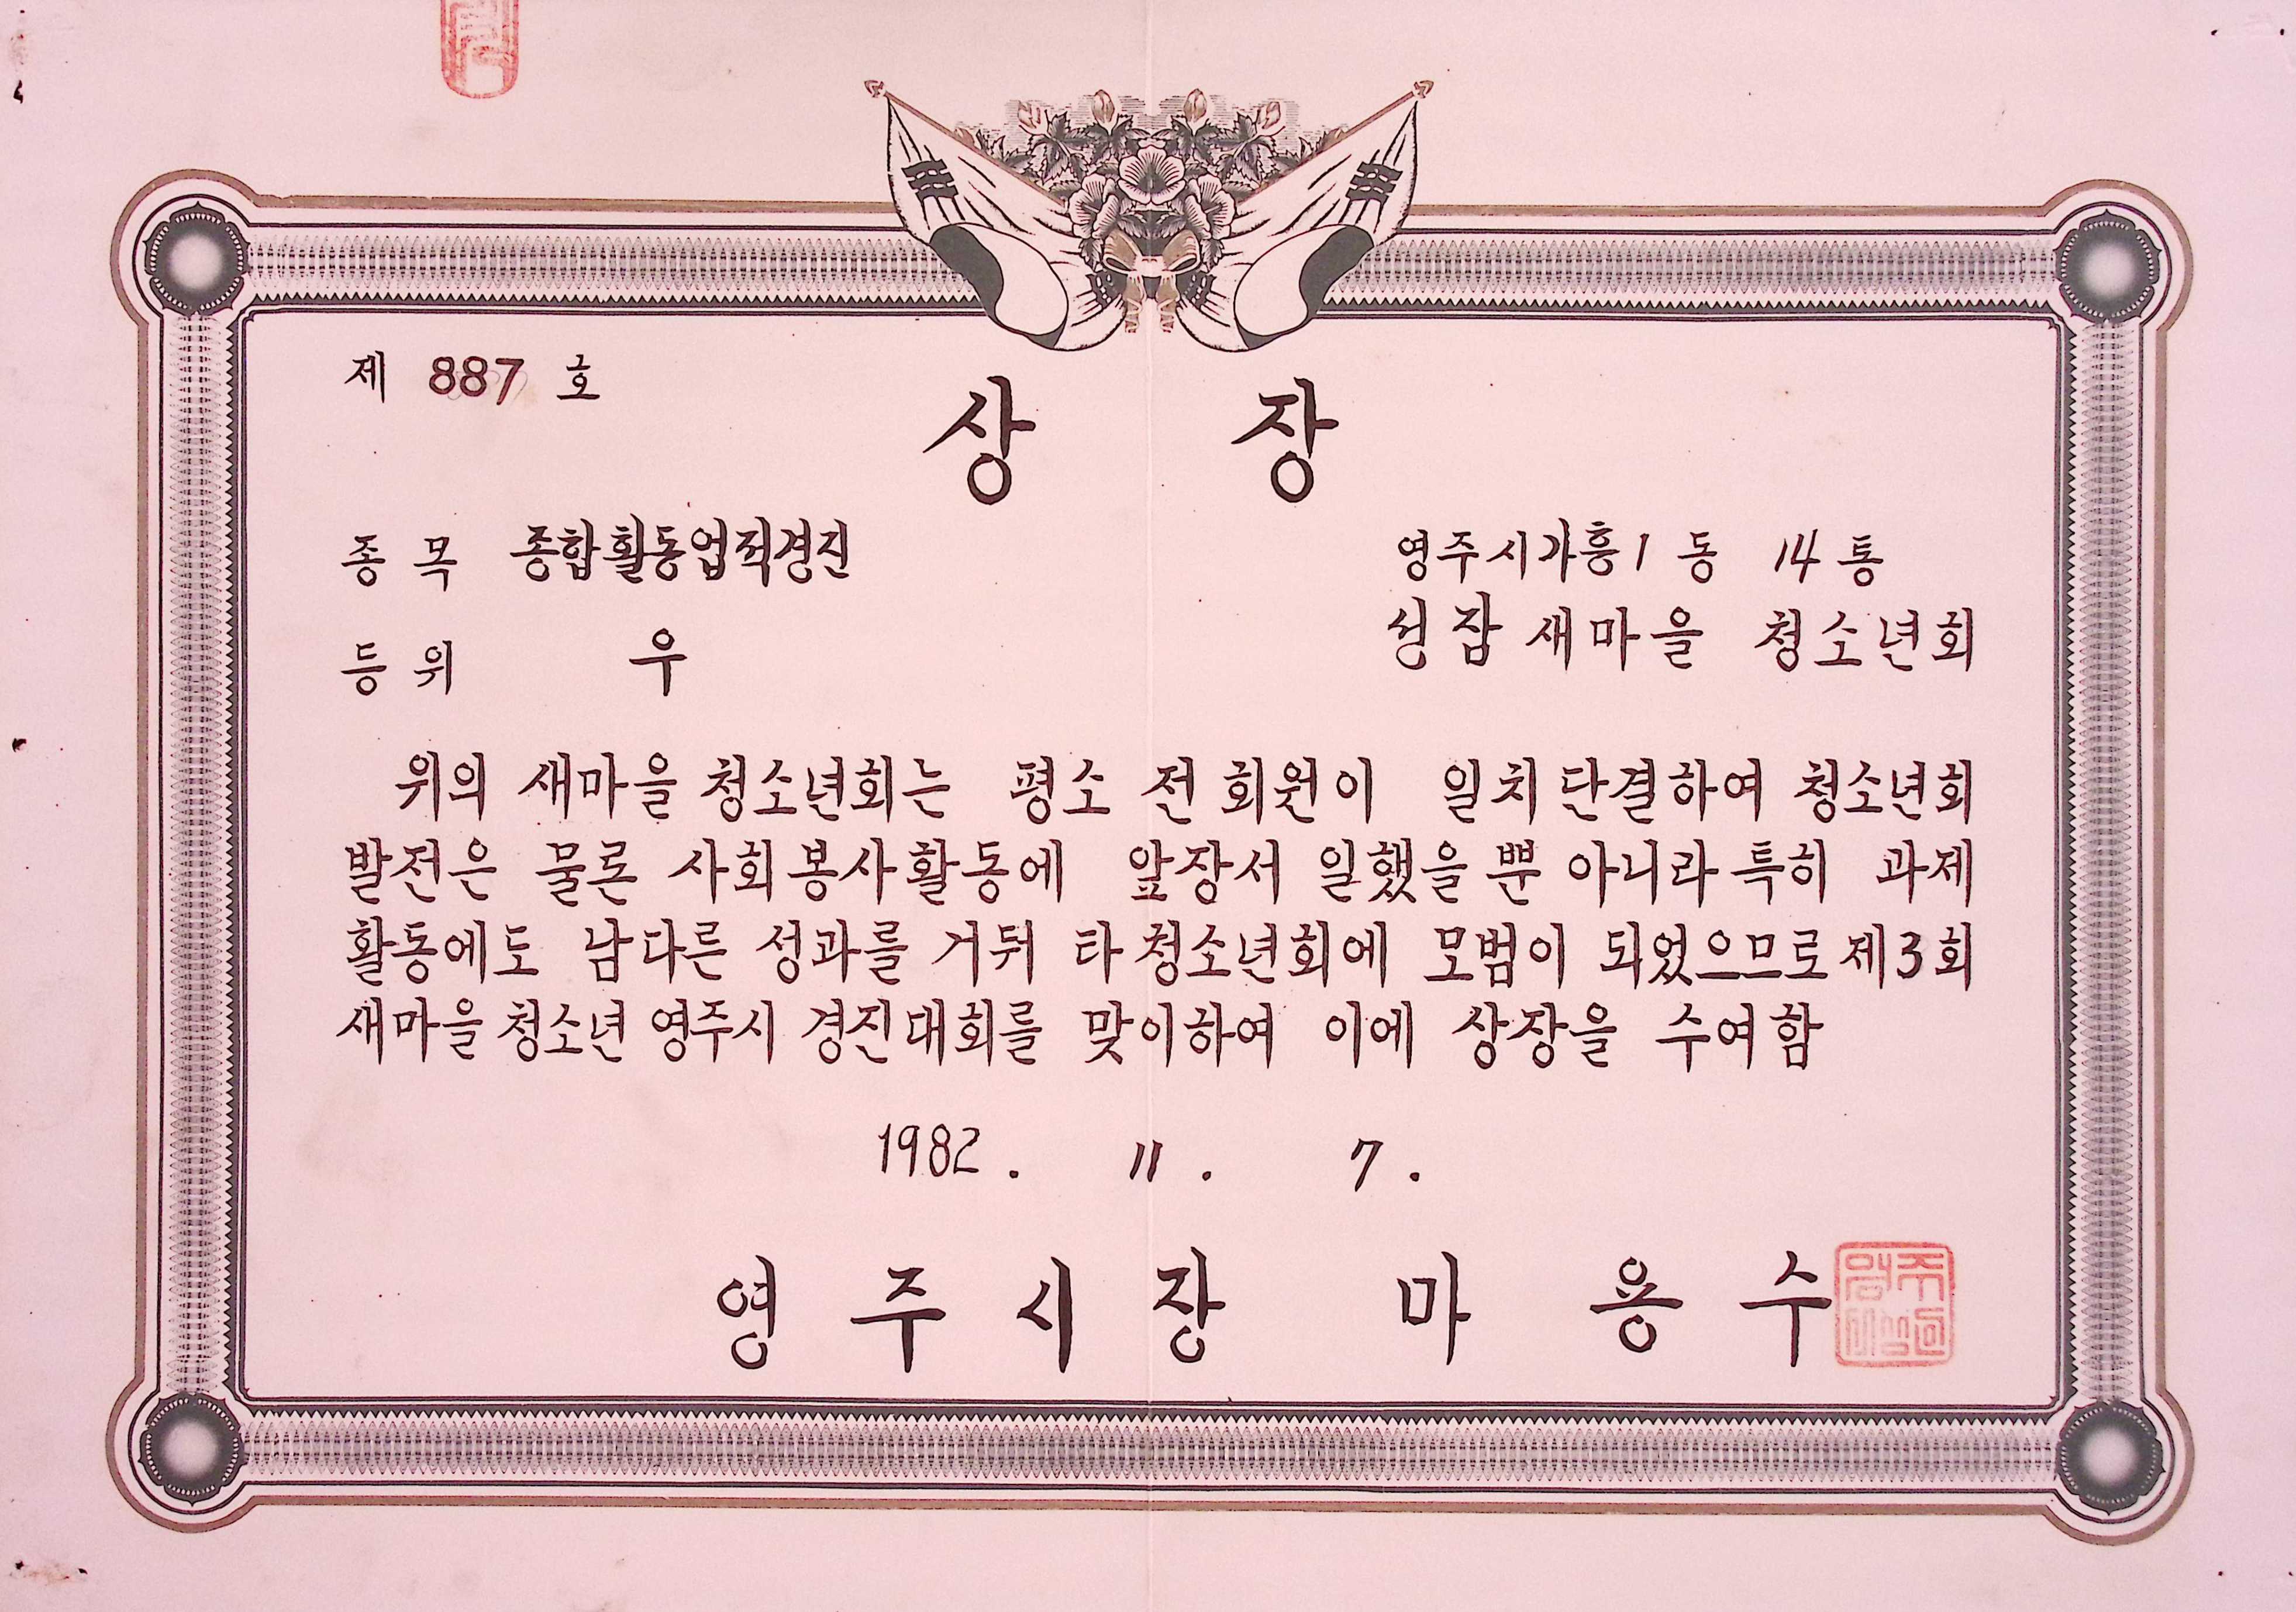 제 887 호
상 장
종목 종합활동업적경진
영주시가흥1동 14통
등위 우
성잠 새마을 청소년회
위의 새마을 청소년회는 평소 전 회원이 일치 단결하여 청소년회
발전은 물론 사회봉사활동에 앞장서 일했을 뿐 아니라 특히 과제
활동에도 남다른 성과를 거둬 타 청소년회에 모범이 되었으므로 제3회
새마을 청소년 영주시 경진대회를 맞이하여 이에 상장을 수여함
1982. 11. 7.
영주시장 마용수